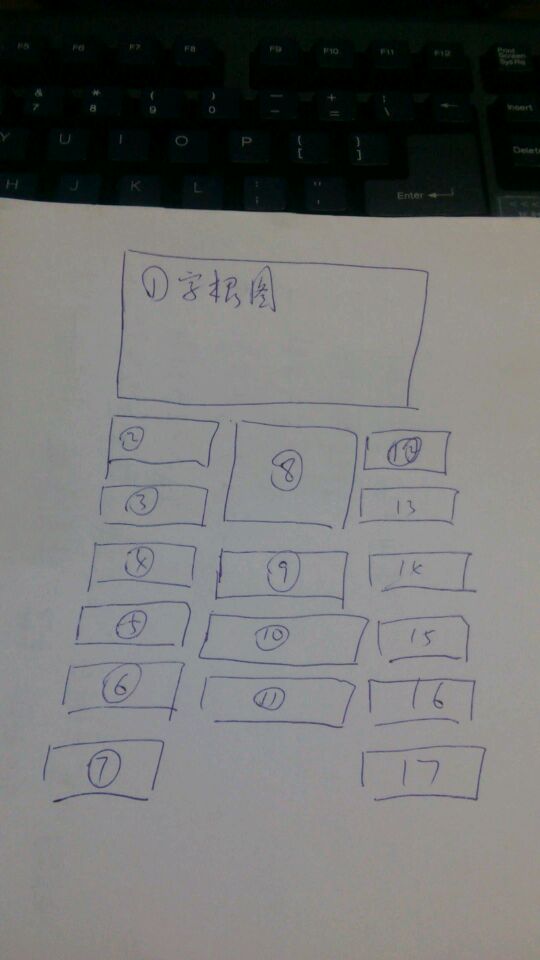 F5 F6 F7 F8 F9 F10 F11 F12 Print Screen SysRq
& 7 * 8 ( 9 ) 0 — - + = | \ ← Insert
Y U I O P { [ } ] Delete
H J K L : ; " ' Enter ←
① 字根图
② ⑧ 12
③ 13
④ ⑨ 14
⑤ ⑩ 15
⑥ ⑪ 16
⑦ 17